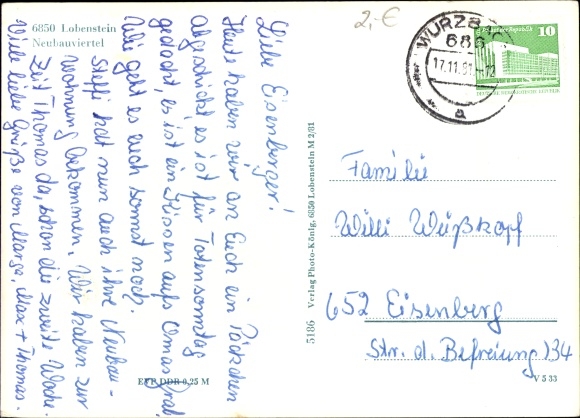 6850 Lobenstein
Neubauviertel
Liebe Eisenberger!
Heute haben wir an Euch ein Päckchen
abgeschickt es ist für Totensonntag
gedacht, es ist ein Kissen aufs Omas Grab.
Wie geht es euch sonst noch.
Steffi hat nun auch ihre Neubau-
wohnung bekommen. Wir haben zur
Zeit Thomas da, schon die zweite Woche.
Viele liebe Grüße von Marga, Max + Thomas.
EVP DDR 0,25 M
5186 Verlag Photo-König, 6850 Lobenstein M 2/81
2,-€
WURZB
686
17.11.81
a
10
Familie
Willi Wüßkopf
652 Eisenberg
Str. d. Befreiung 34
V 5 33